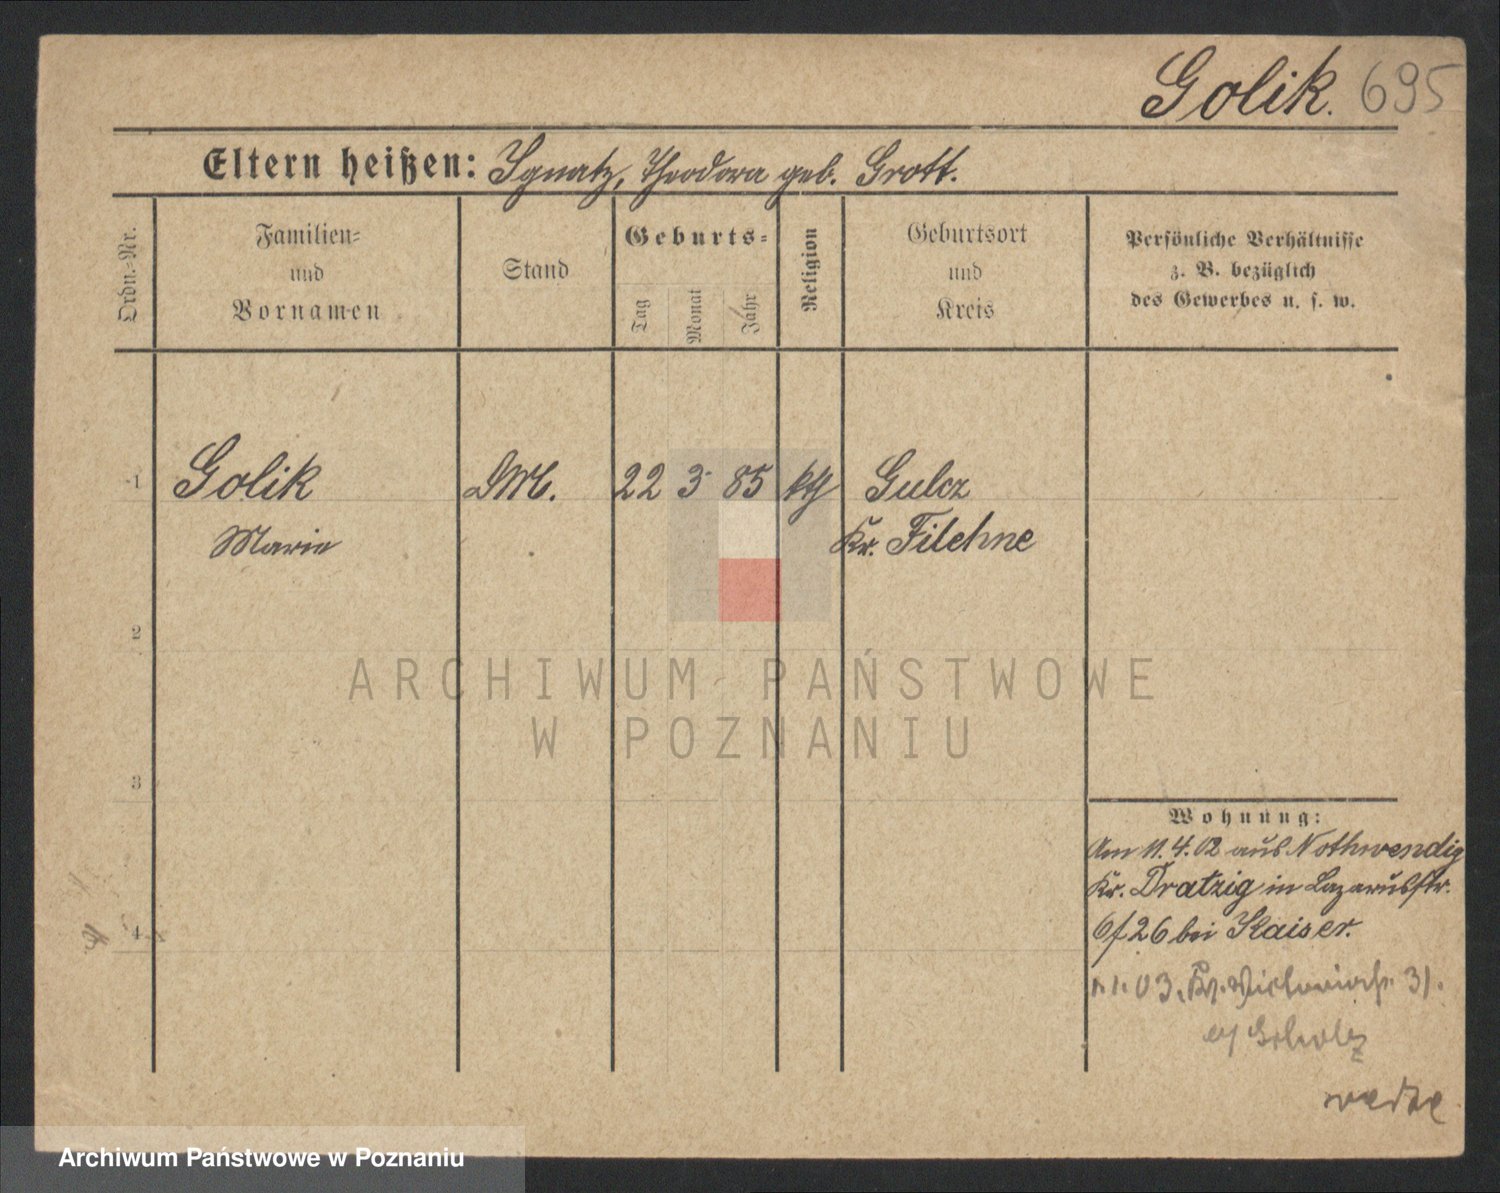 Golik. 695
Eltern heißen: Ignatz, Theodora geb. Grott.
Ordn.-Nr.
Familien-
und
Vornamen
Stand
Geburts-
Tag
Monat
Jahr
Religion
Geburtsort
und
Kreis
Persönliche Verhältnisse
z. B. bezüglich
des Gewerbes u. s. w.
1 Golik DM. 22 3 85 kth Gulcz
Marie Kr. Filehne
2
3
4
Wohnung:
Am 11.4.02 aus Nothwendig
Kr. Dratzig in Lazarusstr.
6/26 bei Kaiser.
1.1.03. Victoriastr. 31.
Scholz
ARCHIWUM PAŃSTWOWE
W POZNANIU
Archiwum Państwowe w Poznaniu